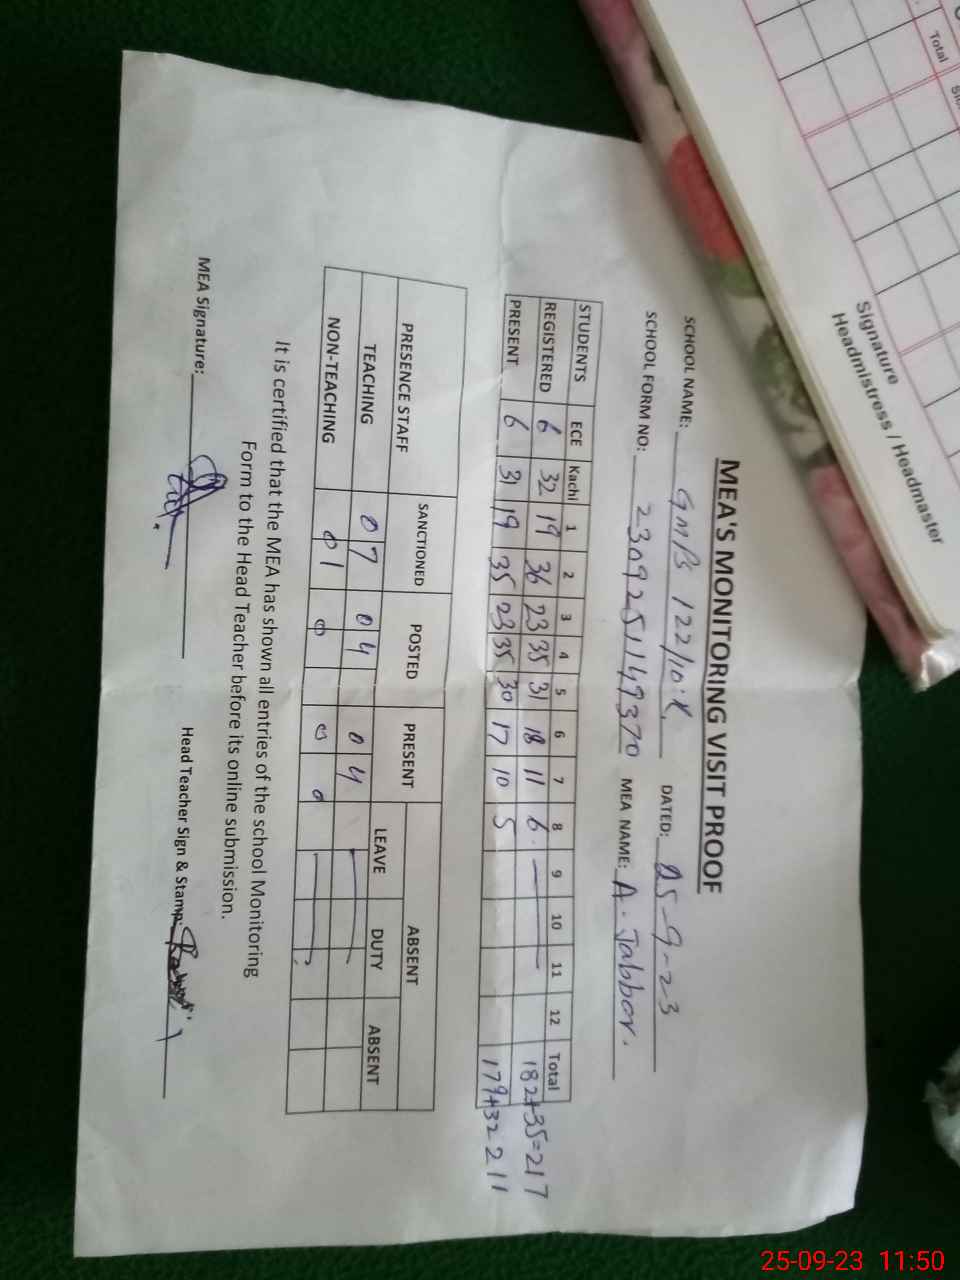 MEA'S MONITORING VISIT PROOF
SCHOOL NAME: GMPS 122/10.R. DATED: 25-9-23
SCHOOL FORM NO: 2309251149370 MEA NAME: A. Jabbar.
STUDENTS ECE Kachi 1 2 3 4 5 6 7 8 9 10 11 12 Total
REGISTERED 6 32 19 36 23 35 31 18 11 6 182+35=217
PRESENT 6 31 19 35 23 35 30 17 10 5 179+32 211
PRESENCE STAFF SANCTIONED POSTED PRESENT ABSENT
LEAVE DUTY ABSENT
TEACHING 07 04 04
NON-TEACHING 01 0 0 0
It is certified that the MEA has shown all entries of the school Monitoring
Form to the Head Teacher before its online submission.
MEA Signature: Head Teacher Sign & Stamp:
Total
Signature
Headmistress / Headmaster
25-09-23 11:50